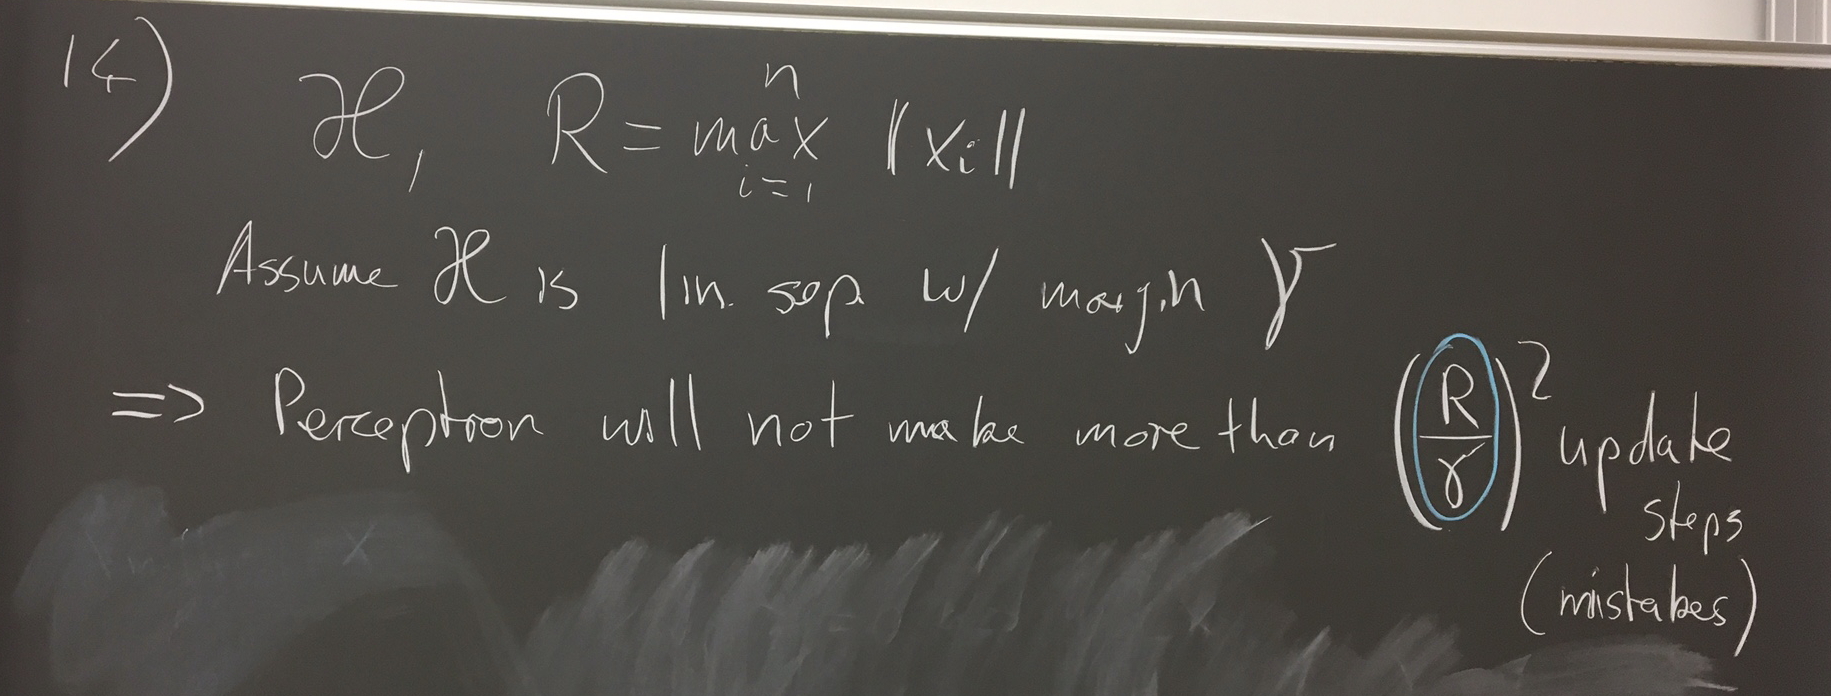 14) ℋ, R = max_{i=1}^{n} ‖xᵢ‖
Assume ℋ is lin. sep. w/ margin γ
=> Perceptron will not make more than (R/γ)² update
steps
(mistakes)